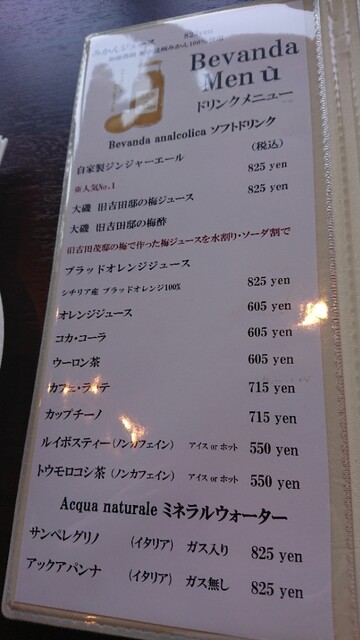 みかんジュース 825yen
みかん100%使用
Bevanda
Menù
ドリンクメニュー
Bevanda analcolica ソフトドリンク
(税込)
自家製ジンジャーエール 825 yen
※人気No.1
大磯 旧吉田邸の梅ジュース 825 yen
大磯 旧吉田邸の梅酢
旧吉田茂邸の梅で作った梅ジュースを水割り・ソーダ割で
ブラッドオレンジジュース 825 yen
シチリア産 ブラッドオレンジ100%
オレンジジュース 605 yen
コカ・コーラ 605 yen
ウーロン茶 605 yen
カフェ・ラテ 715 yen
カップチーノ 715 yen
ルイボスティー(ノンカフェイン) アイス or ホット 550 yen
トウモロコシ茶(ノンカフェイン) アイス or ホット 550 yen
Acqua naturale ミネラルウォーター
サンペレグリノ (イタリア) ガス入り 825 yen
アックアパンナ (イタリア) ガス無し 825 yen